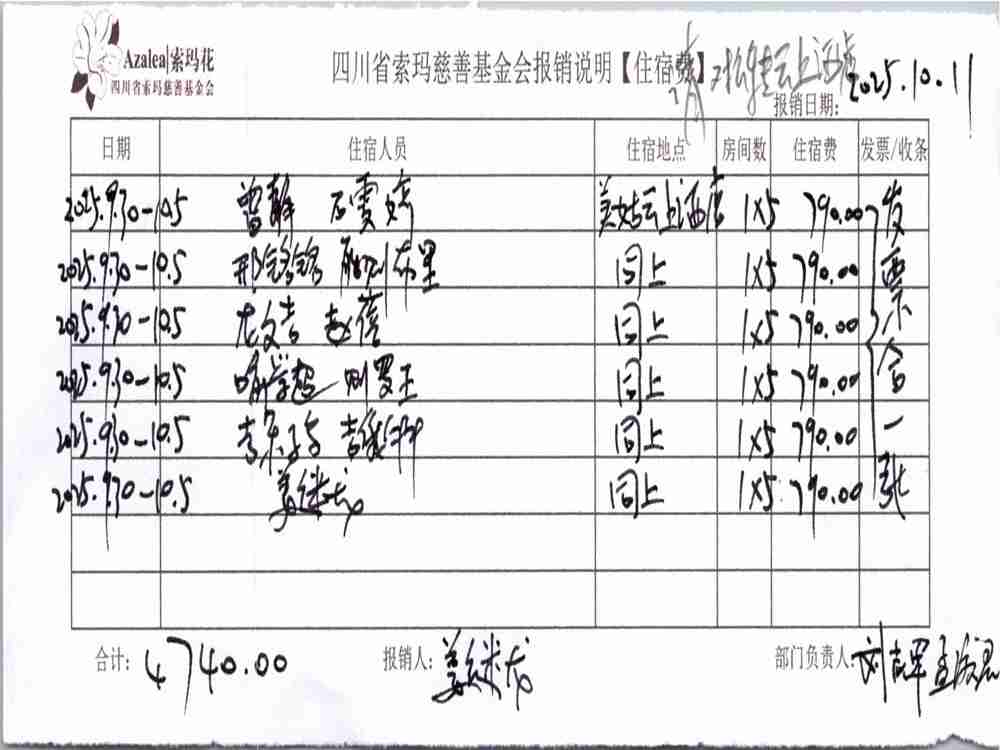 Azalea|索玛花
四川省索玛慈善基金会
四川省索玛慈善基金会报销说明【住宿费】
云上酒店
报销日期: 2025.10.11
日期 住宿人员 住宿地点 房间数 住宿费 发票/收条
2025.9.30-10.5 曾静 石雯婷 美姑云上酒店 1×5 790.00 发票合一张
2025.9.30-10.5 布里 同上 1×5 790.00
2025.9.30-10.5 尤文吉 赵蓓 同上 1×5 790.00
2025.9.30-10.5 同上 1×5 790.00
2025.9.30-10.5 同上 1×5 790.00
2025.9.30-10.5 姜继龙 同上 1×5 790.00
合计: 4740.00 报销人: 姜继龙 部门负责人: